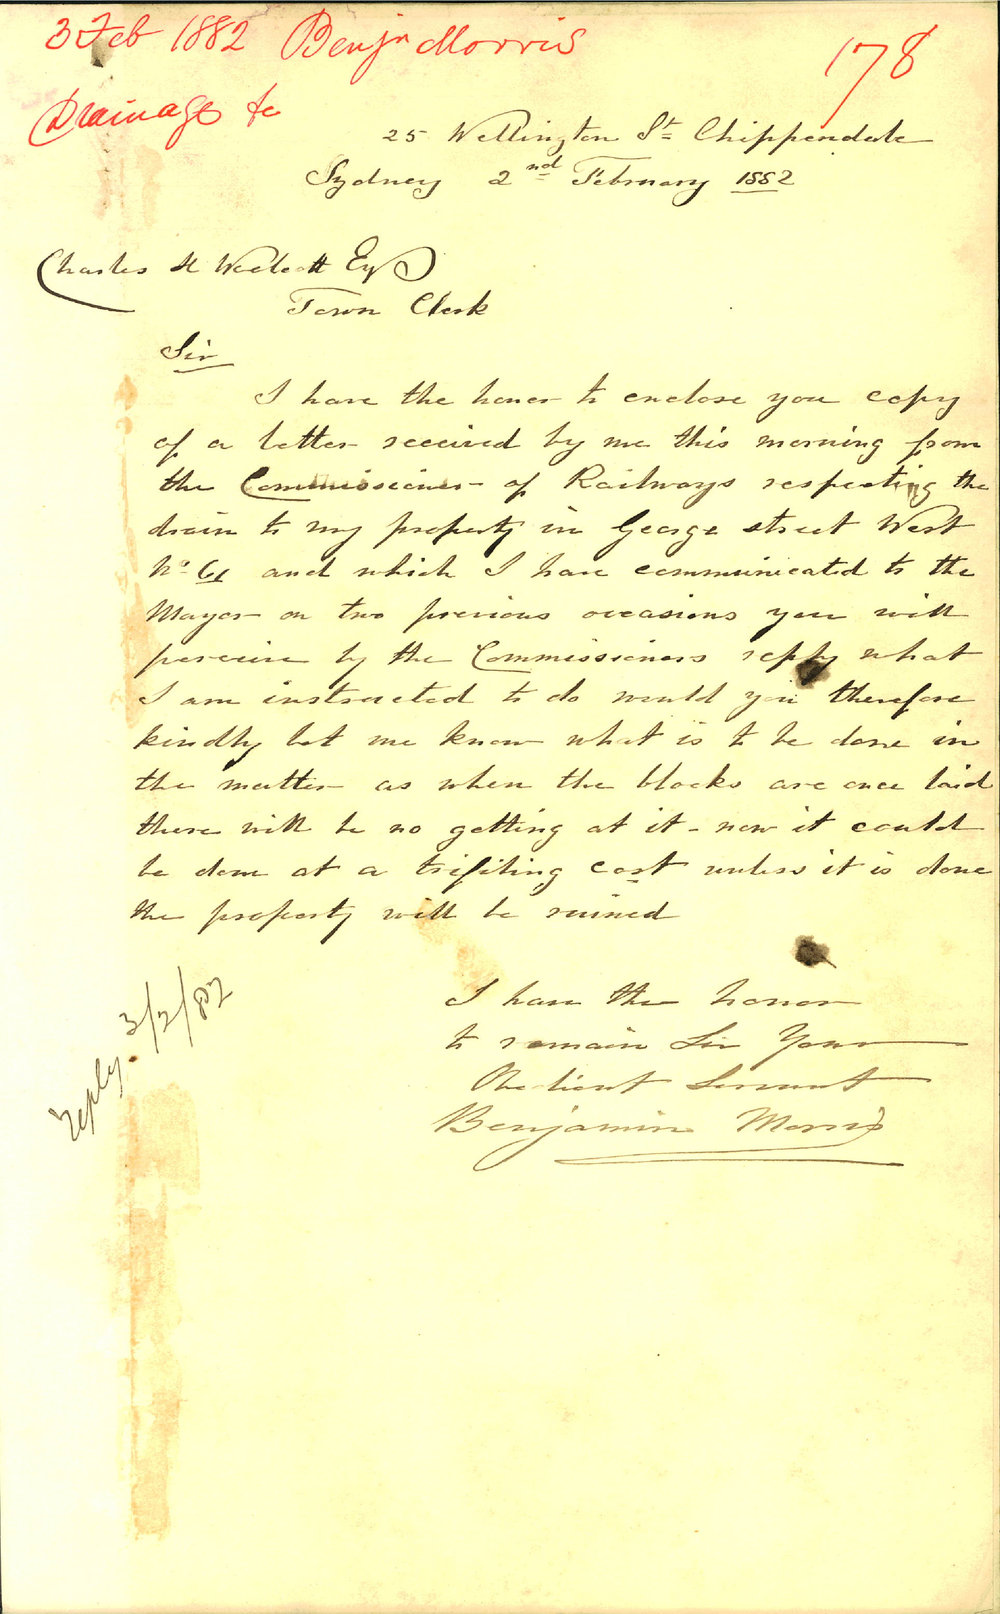 3 Feb 1882 Benjn Morris
178
Drainage &c
25 Wellington St Chippendale
Sydney 2nd February 1882
Charles H Woolcott Esq
Town Clerk
Sir
I have the honor to enclose you copy
of a letter received by me this morning from
the Commissioner of Railways respecting the
drain to my property in George street West
No 61 and which I have communicated to the
Mayor on two previous occasions you will
perceive by the Commissioners reply what
I am instructed to do would you therefore
kindly let me know what is to be done in
the matter as when the blocks are once laid
there will be no getting at it - now it could
be done at a trifiling cost unless it is done
the property will be ruined
I have the honor
to remain Sir Your
Obedient Servant
Benjamin Morris
reply. 3/2/82